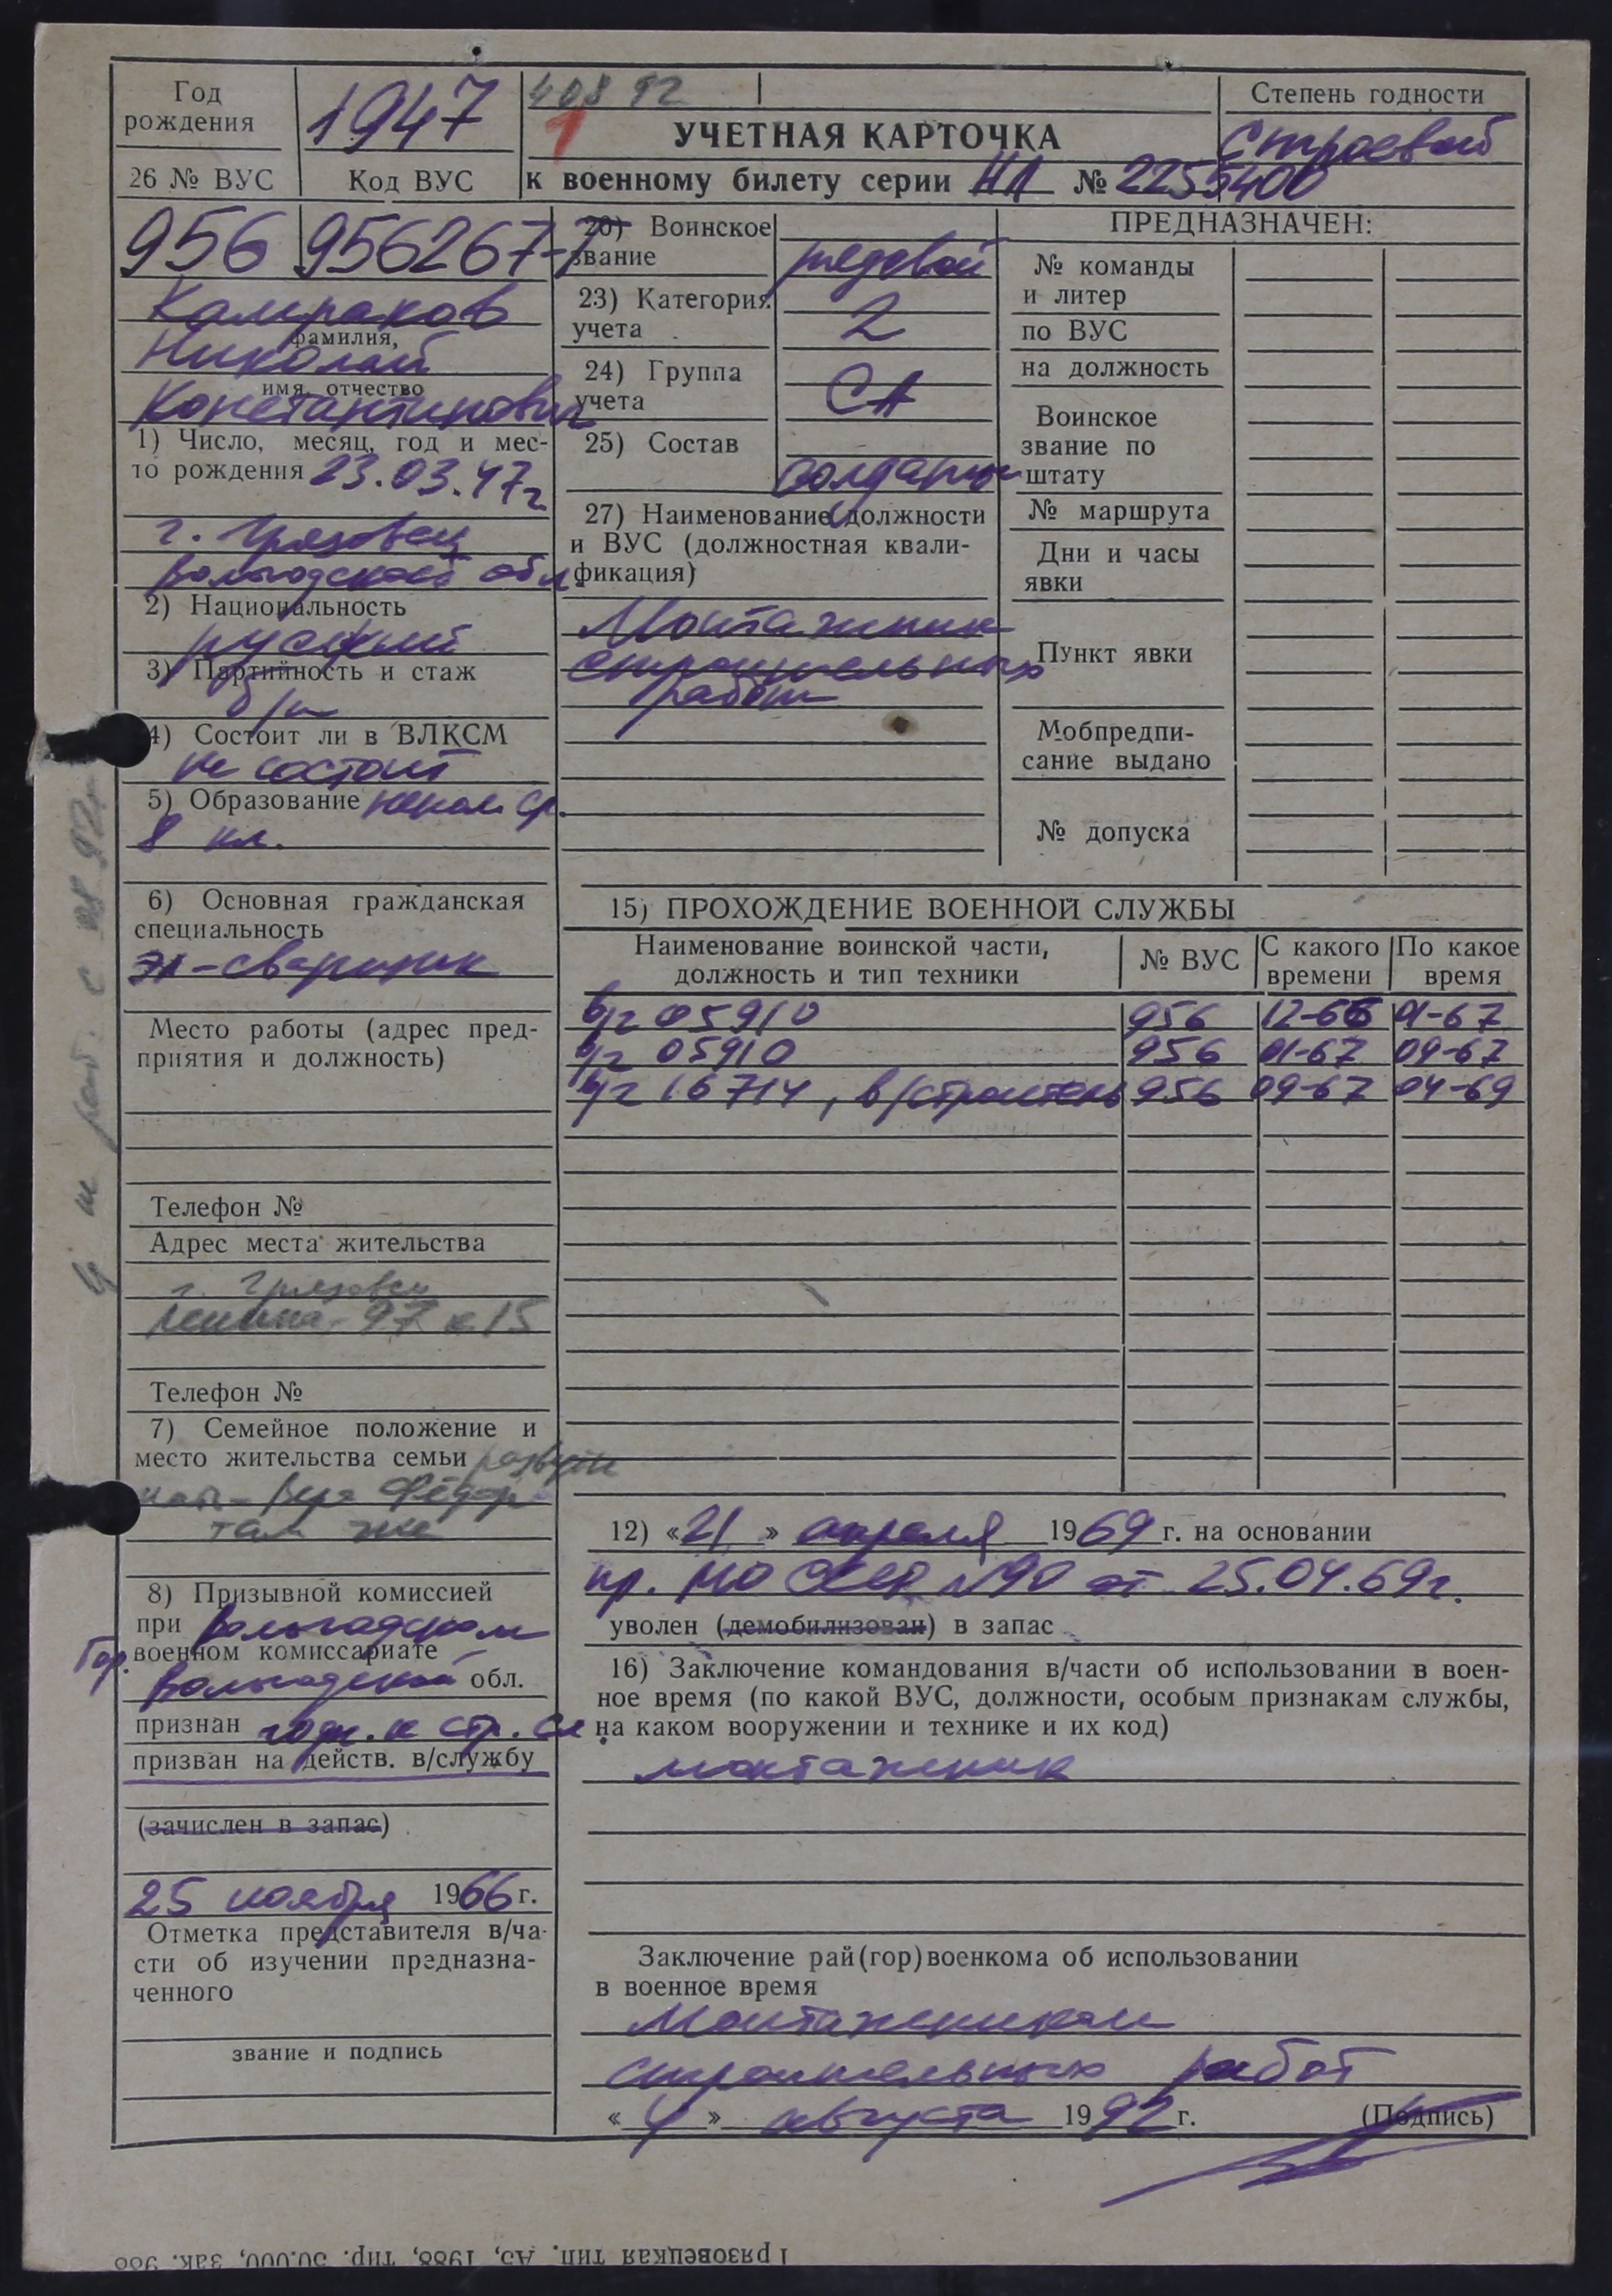 Год
рождения
1947
408 92
1
УЧЕТНАЯ КАРТОЧКА
к военному билету серии НЛ № 2255400
Степень годности
строевой
26 № ВУС
Код ВУС
956
956267-
Камраков
фамилия,
Николай
имя, отчество
Константинович
1) Число, месяц, год и мес-
то рождения 23.03.47г
г. Грязовец
Вологодской обл.
2) Национальность
русский
3) Партийность и стаж
б/п
4) Состоит ли в ВЛКСМ
не состоит
5) Образование непол. ср.
8 кл.
6) Основная гражданская
специальность
эл-сварщик
Место работы (адрес пред-
приятия и должность)
Телефон №
Адрес места жительства
г. Грязовец
Ленина-97 к 15
Телефон №
7) Семейное положение и
место жительства семьи разведен
мать-Вера Фёдор
там же
8) Призывной комиссией
при Вологодском
Гор. военном комиссариате
Вологодской обл.
признан годн. к стр. сл
призван на действ. в/службу
(зачислен в запас)
25 ноября 1966 г.
Отметка представителя в/ча-
сти об изучении предназна-
ченного
звание и подпись
20) Воинское
звание
рядовой
23) Категория
учета
2
24) Группа
учета
СА
25) Состав
солдаты
27) Наименование должности
и ВУС (должностная квали-
фикация)
Монтажник
строительных
работ
ПРЕДНАЗНАЧЕН:
№ команды
и литер
по ВУС
на должность
Воинское
звание по
штату
№ маршрута
Дни и часы
явки
Пункт явки
Мобпредпи-
сание выдано
№ допуска
15) ПРОХОЖДЕНИЕ ВОЕННОЙ СЛУЖБЫ
Наименование воинской части,
должность и тип техники
№ ВУС
С какого
времени
По какое
время
в/ч 05910 956 12-66 01-67
в/ч 05910 956 01-67 09-67
в/ч 16714, в/строитель 956 09-67 04-69
12) «21» апреля 1969 г. на основании
пр. МО СССР №90 от 25.04.69г.
уволен (демобилизован) в запас
16) Заключение командования в/части об использовании в воен-
ное время (по какой ВУС, должности, особым признакам службы,
на каком вооружении и технике и их код)
монтажник
Заключение рай(гор)военкома об использовании
в военное время
Монтажником
строительных работ
«4» августа 1992 г. (Подпись)
Грязовецкая тип. А5, 1988, тир. 50.000, зак. 988